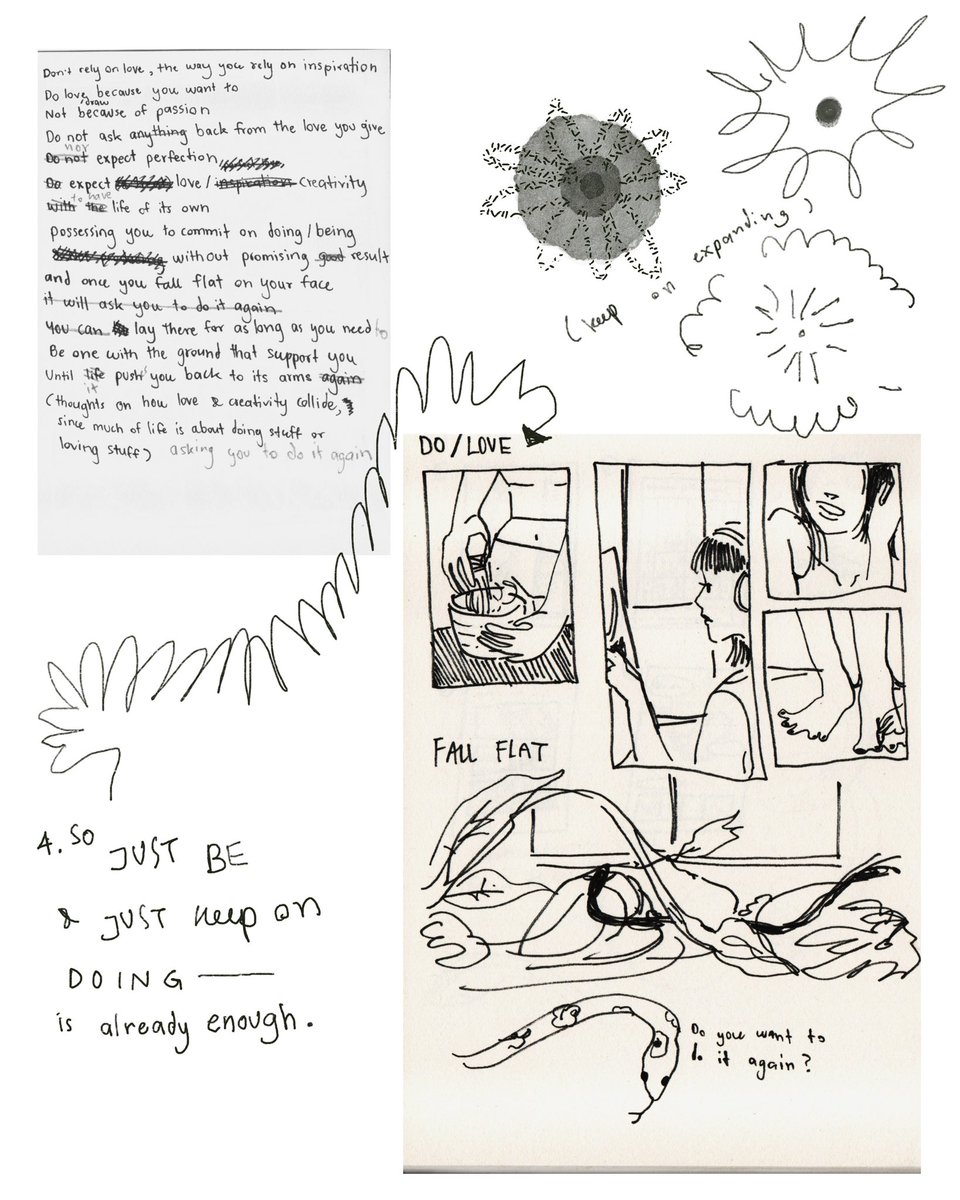 Don't rely on love, the way you rely on inspiration
Do love because you want to
draw
Not because of passion
Do not ask anything back from the love you give
nor
Do not expect perfection
Do expect love / inspiration creativity
to have
with the life of its own
possessing you to commit on doing / being
without promising good result
and once you fall flat on your face
it will ask you to do it again
You can lay there for as long as you need to
Be one with the ground that support you
Until life push you back to its arms again
it
(thoughts on how love & creativity collide,
since much of life is about doing stuff or
loving stuff) asking you to do it again
(keep on expanding)
DO / LOVE
FALL FLAT
Do you want to
do it again?
4. SO JUST BE
& JUST keep on
DOING —
is already enough.